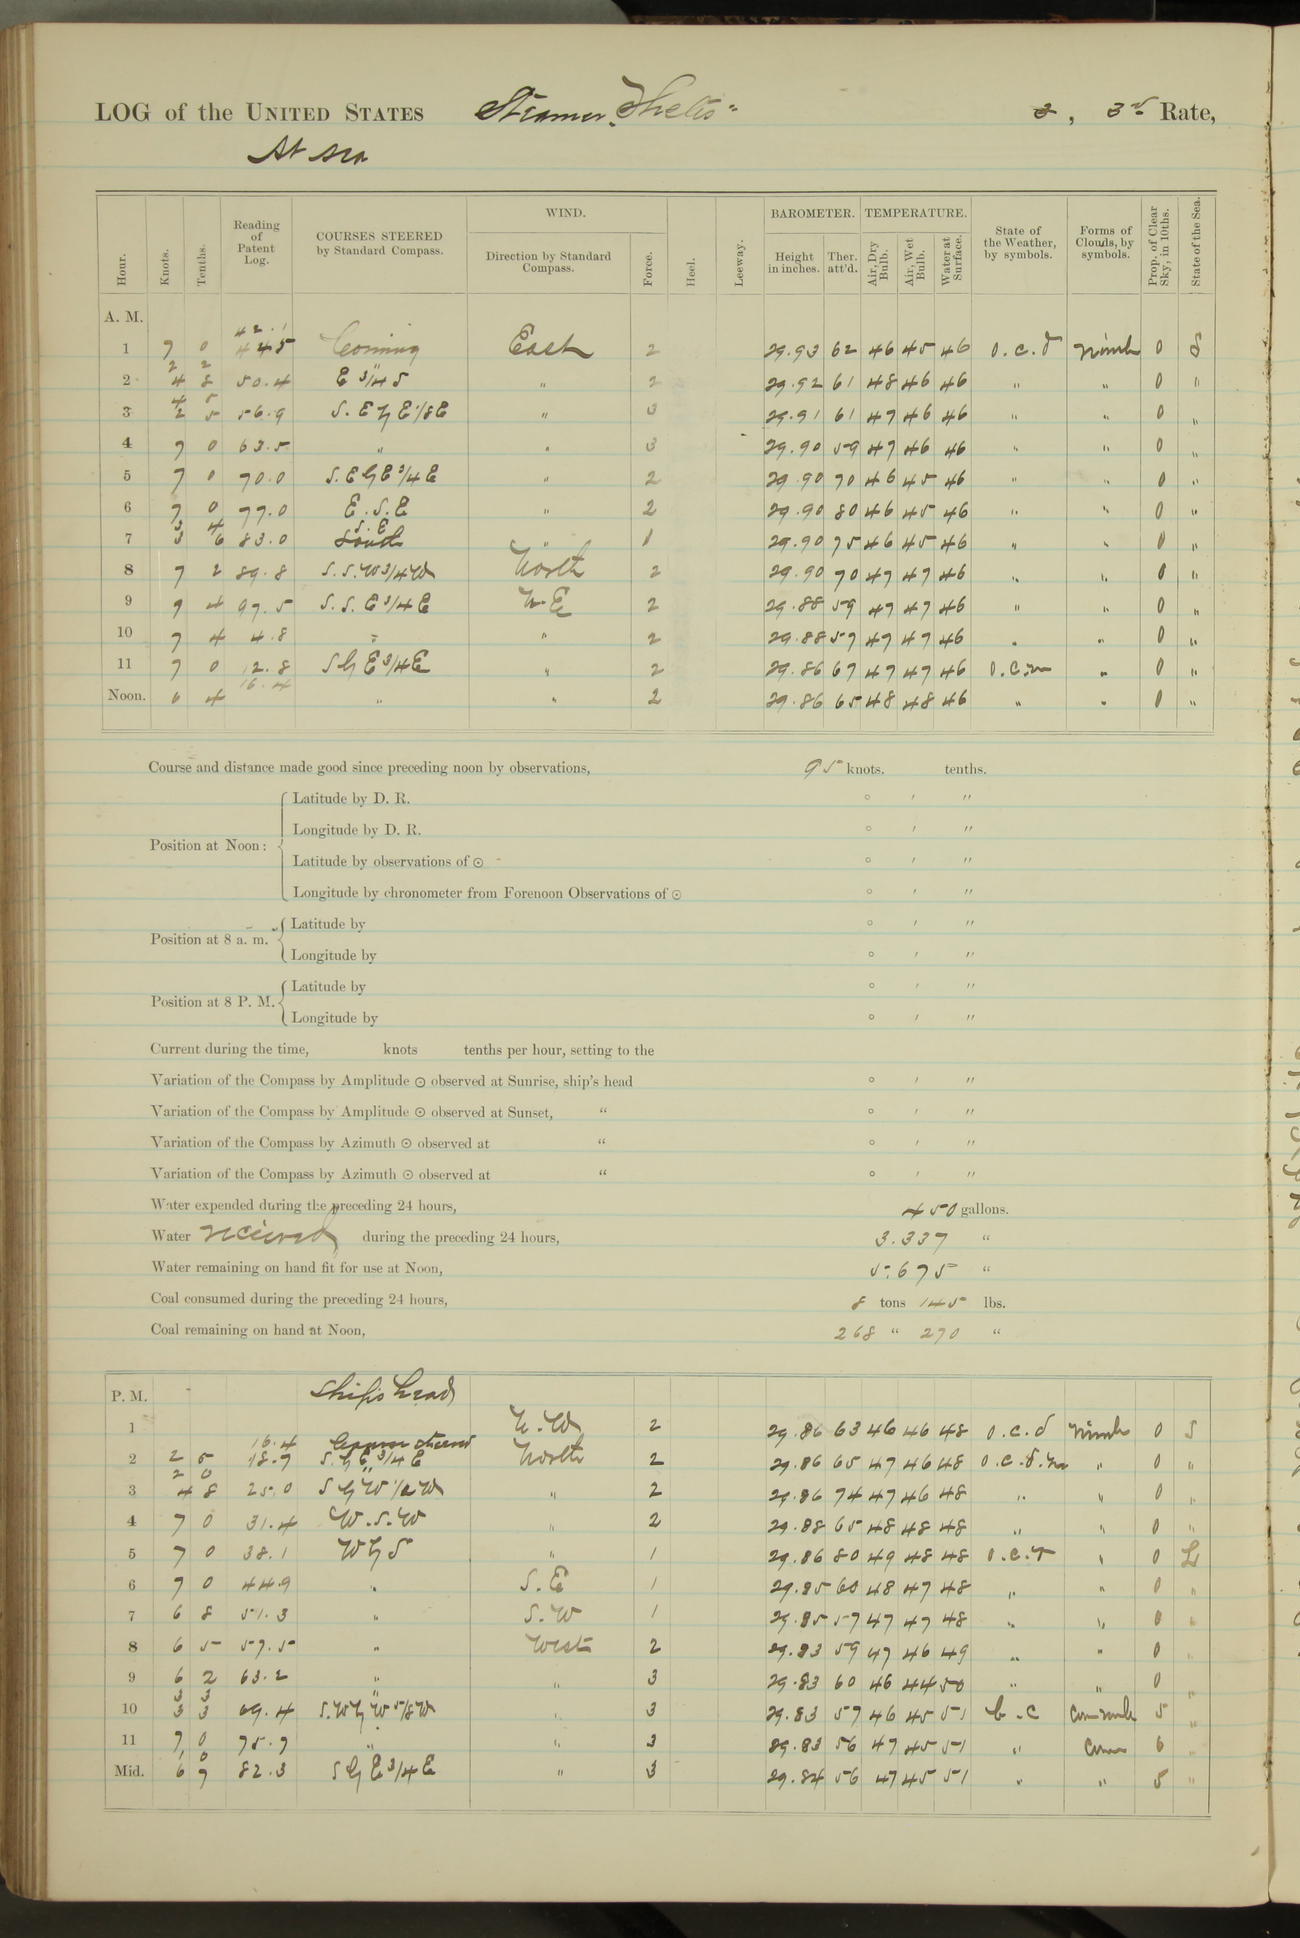 LOG of the UNITED STATES Steamer "Thetis" , 3rd Rate,
At sea
Hour. Knots. Tenths. Reading of Patent Log. COURSES STEERED by Standard Compass. WIND. Direction by Standard Compass. Force. Heel. Leeway. BAROMETER. Height in inches. Ther. att'd. TEMPERATURE. Air, Dry Bulb. Air, Wet Bulb. Water at Surface. State of the Weather, by symbols. Forms of Clouds, by symbols. Prop. of Clear Sky, in 10ths. State of the Sea.
A. M.
42.1
1 7 0 44.5 East 2 29.93 62 46 45 46 o.c.d nimb 0 S
2 2
2 4 8 50.4 E 3/4 S " 2 29.92 61 48 46 46 " " 0 "
4 5
3 2 5 56.9 S.E by E 1/8 E " 3 29.91 61 47 46 46 " " 0 "
4 7 0 63.5 " " 3 29.90 59 47 46 46 " " 0 "
5 7 0 70.0 S.E by E 3/4 E " 2 29.90 70 46 45 46 " " 0 "
6 7 0 77.0 E.S.E " 2 29.90 80 46 45 46 " " 0 "
3 4 S.E
7 3 6 83.0 South " 1 29.90 75 46 45 46 " " 0 "
8 7 2 89.8 S.S.W 3/4 W North 2 29.90 70 47 47 46 " " 0 "
9 7 4 97.5 S.S.E 3/4 E N.E 2 29.88 59 47 47 46 " " 0 "
10 7 4 4.8 " " 2 29.88 57 47 47 46 " " 0 "
11 7 0 12.8 S by E 3/4 E " 2 29.86 67 47 47 46 o.c.m " 0 "
16.4
Noon. 6 4 " " 2 29.86 65 48 48 46 " " 0 "
Course and distance made good since preceding noon by observations, 95 knots. tenths.
Position at Noon:
Latitude by D. R. ° ′ ″
Longitude by D. R. ° ′ ″
Latitude by observations of ☉ ° ′ ″
Longitude by chronometer from Forenoon Observations of ☉ ° ′ ″
Position at 8 a. m.
Latitude by ° ′ ″
Longitude by ° ′ ″
Position at 8 P. M.
Latitude by ° ′ ″
Longitude by ° ′ ″
Current during the time, knots tenths per hour, setting to the
Variation of the Compass by Amplitude ☉ observed at Sunrise, ship's head ° ′ ″
Variation of the Compass by Amplitude ☉ observed at Sunset, " ° ′ ″
Variation of the Compass by Azimuth ☉ observed at " ° ′ ″
Variation of the Compass by Azimuth ☉ observed at " ° ′ ″
Water expended during the preceding 24 hours, 450 gallons.
Water received during the preceding 24 hours, 3.337 "
Water remaining on hand fit for use at Noon, 5.675 "
Coal consumed during the preceding 24 hours, 8 tons 145 lbs.
Coal remaining on hand at Noon, 268 " 270 "
P. M. Ship's head
1 N.W 2 29.86 63 46 46 48 o.c.d nimb 0 S
16.4 Course steered
2 2 5 18.7 S by E 3/4 E North 2 29.86 65 47 46 48 o.c.d.m " 0 "
2 0 "
3 4 8 25.0 S by W 1/2 W " 2 29.86 74 47 46 48 " " 0 "
4 7 0 31.4 W.S.W " 2 29.88 65 48 48 48 " " 0 "
5 7 0 38.1 W by S " 1 29.86 80 49 48 48 o.c.r " 0 L
6 7 0 44.9 " S.E 1 29.85 60 48 47 48 " " 0 "
7 6 8 51.3 " S.W 1 29.85 57 47 47 48 " " 0 "
8 6 5 57.5 " West 2 29.83 59 47 46 49 " " 0 "
9 6 2 63.2 " " 3 29.83 60 46 44 50 " " 0 "
3 3 "
10 3 3 69.4 S.W by W 5/8 W " 3 29.83 57 46 45 51 b.c 5 "
11 7 0 75.7 " " 3 29.83 56 47 45 51 " 6 "
1 0
Mid. 6 7 82.3 S by E 3/4 E " 3 29.84 56 47 45 51 " " 5 "